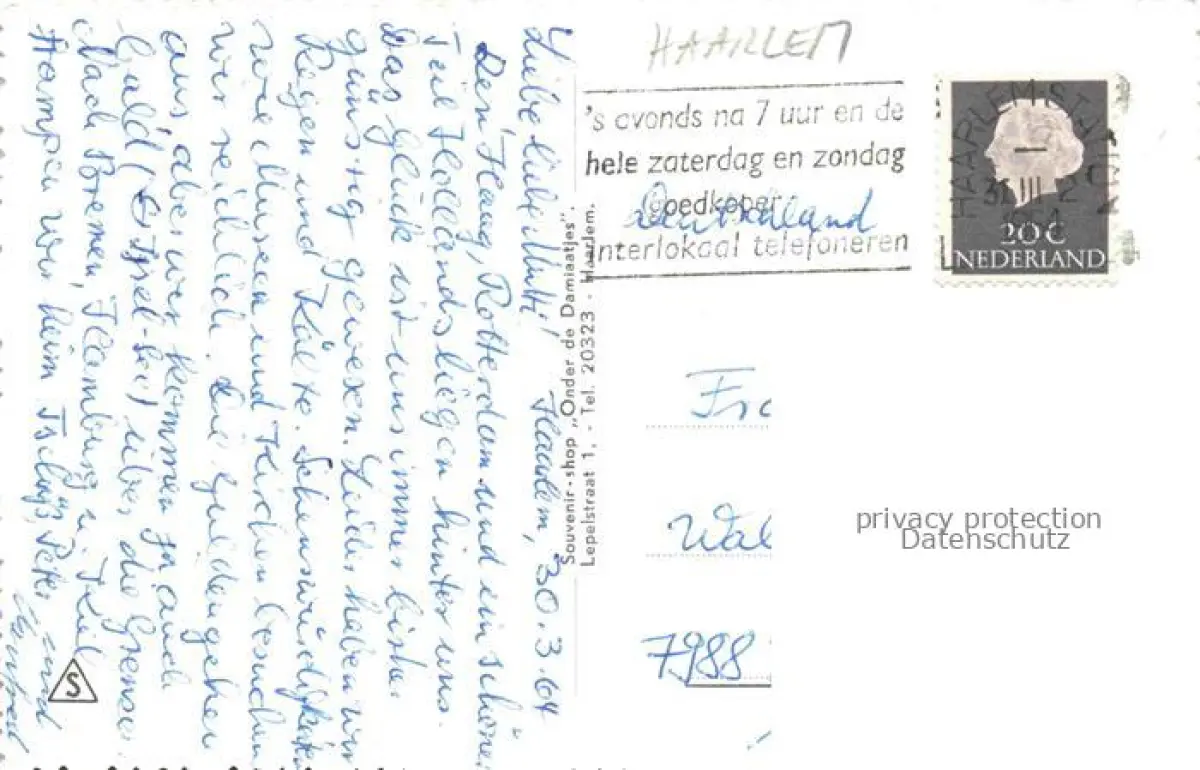 Liebe liebe Mutti! Haarlem, 30.3.64
Den Haag, Rotterdam und ein schöner
Teil Hollands liegen hinter uns.
Das Glück ist uns immer bisher
günstig gewesen. Leider haben wir
Regen und Kälte. Sehenswürdigkeiten
wie Museen und Kirchen besuchen
wir reichlich. Die Gulden gehen
aus aber wir kommen ja auch
bald über die Grenze.
Nach Bremen, Hamburg u. Kiel
Peter
und
HAARLEM
's avonds na 7 uur en de
hele zaterdag en zondag
goedkoper
interlokaal telefoneren
Deutschland
HAARLEM STATION
31.III.
1964
20c
NEDERLAND
Souvenir-shop „Onder de Damiaatjes".
Lepelstraat 1. - Tel. 20323 - Haarlem.
S
7988
privacy protection
Datenschutz